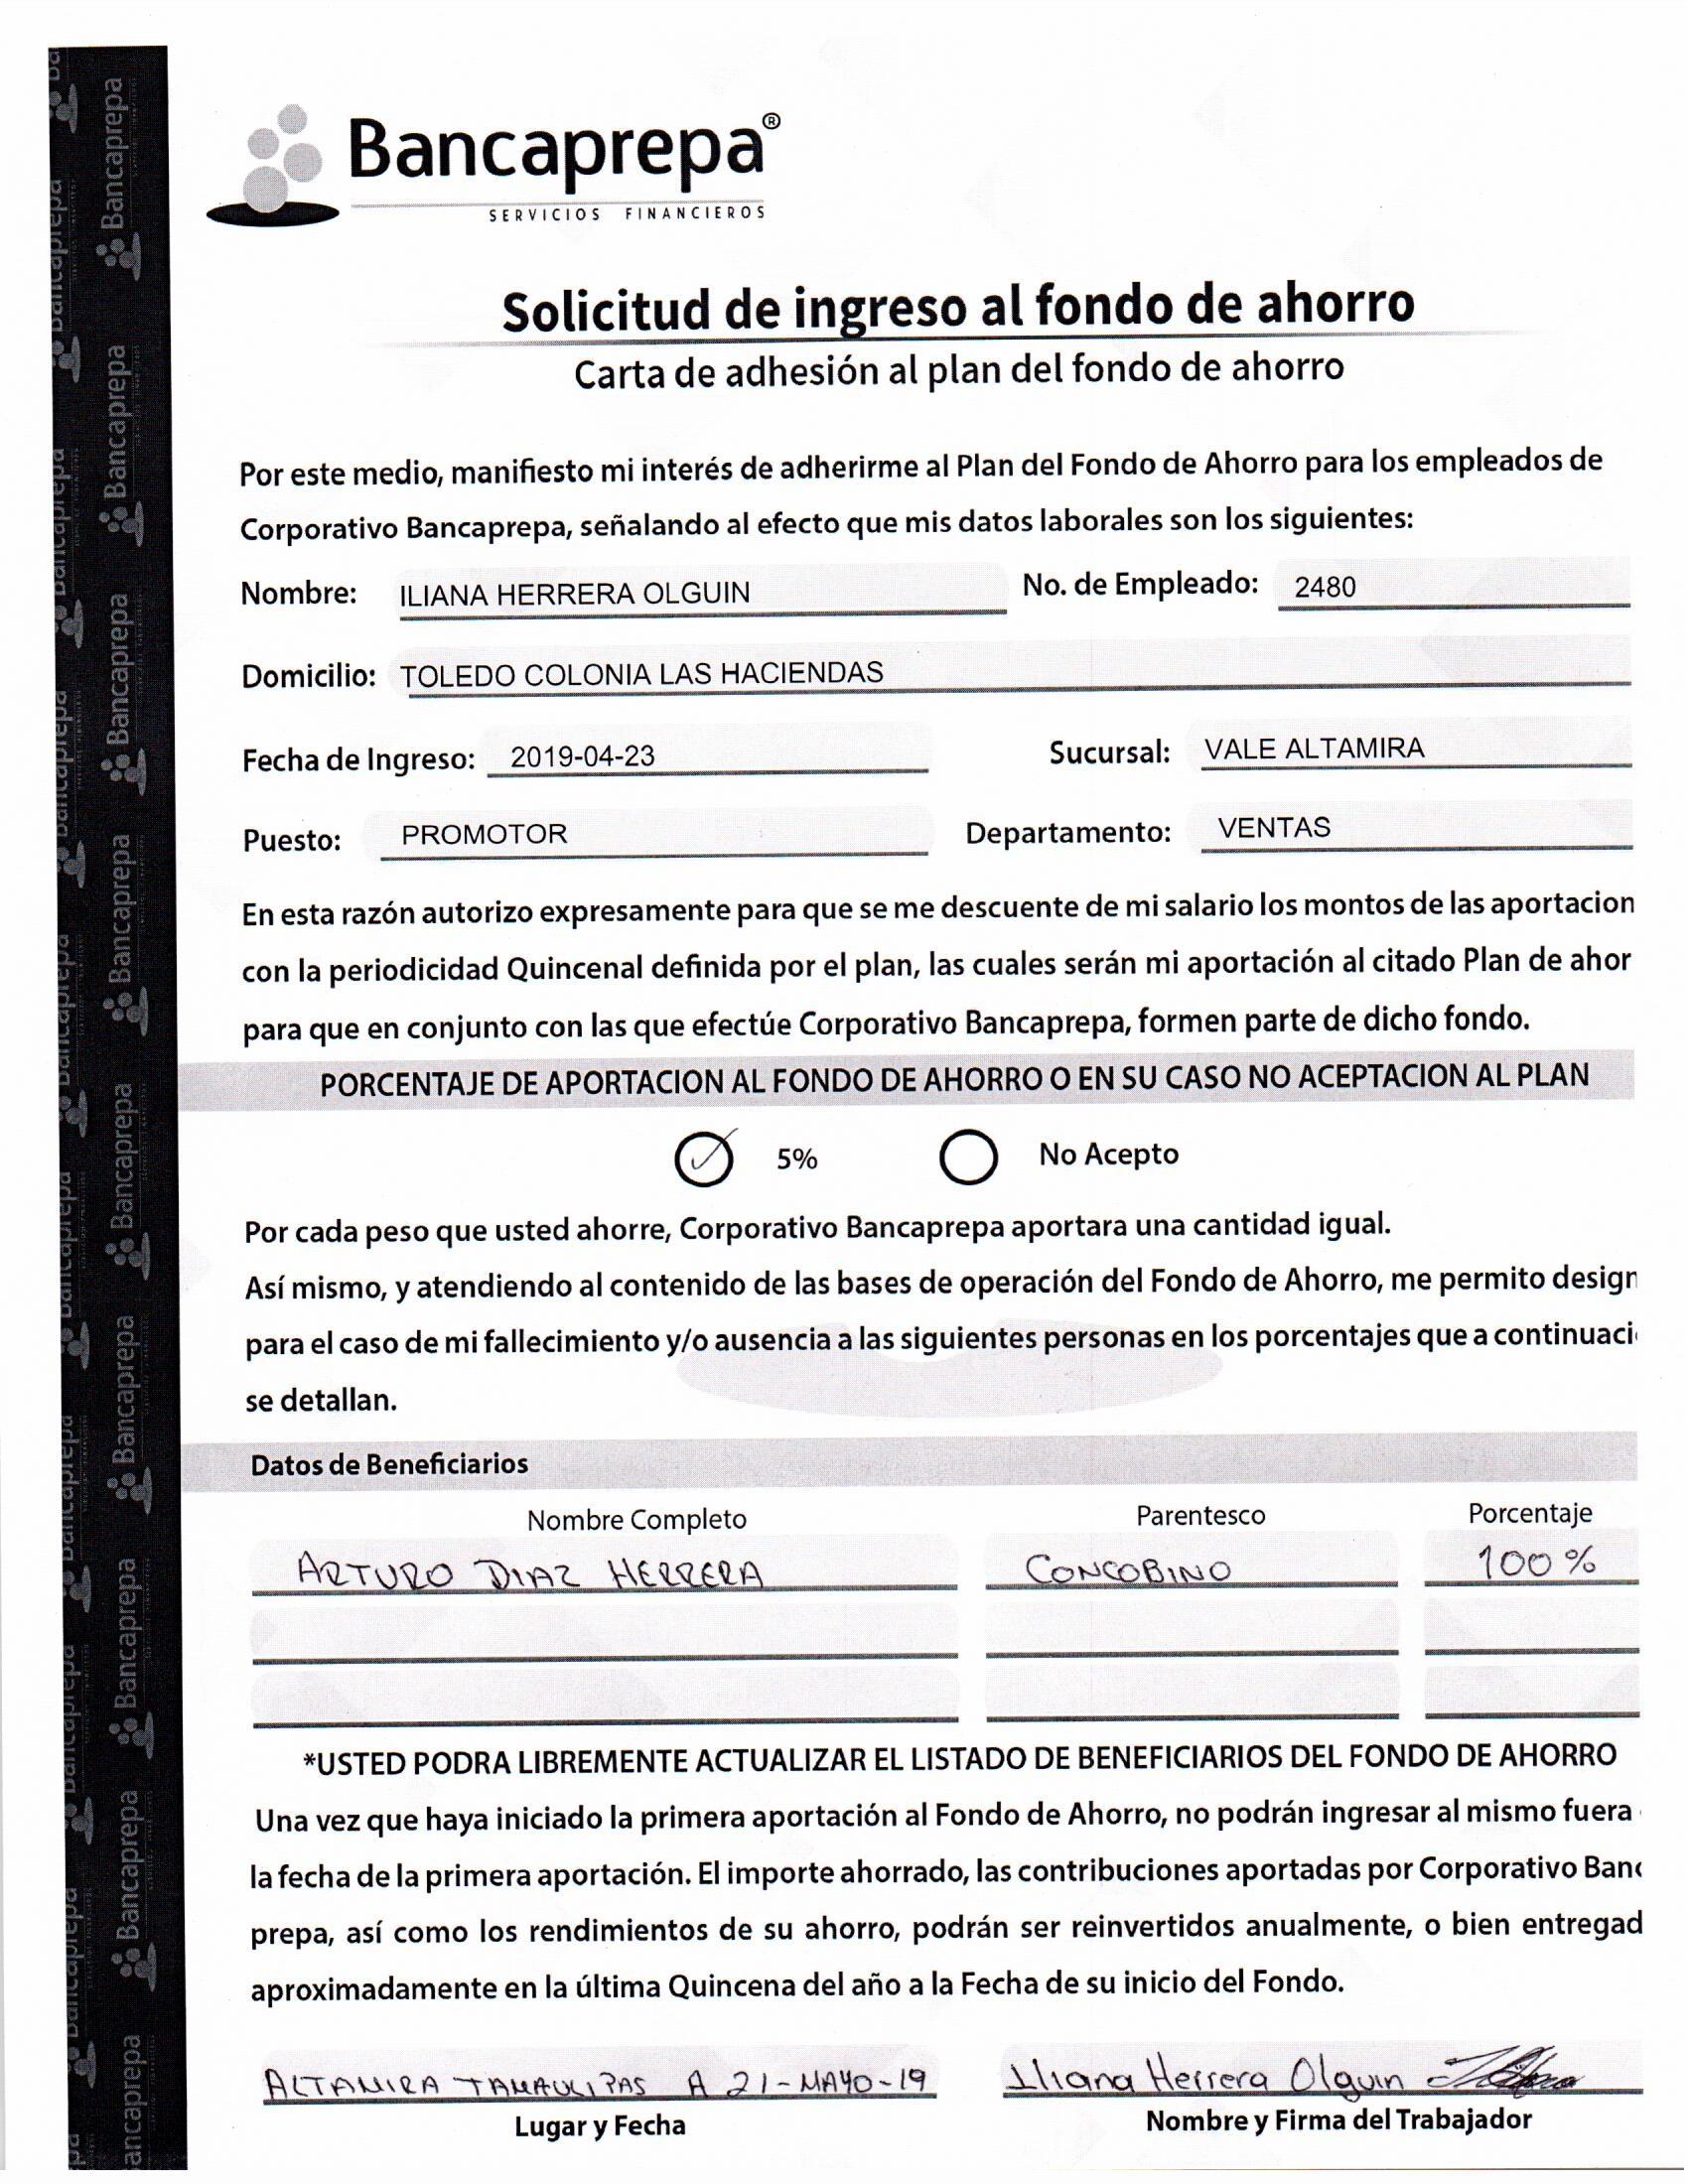 Bancaprepa®
SERVICIOS FINANCIEROS
Solicitud de ingreso al fondo de ahorro
Carta de adhesión al plan del fondo de ahorro
Por este medio, manifiesto mi interés de adherirme al Plan del Fondo de Ahorro para los empleados de
Corporativo Bancaprepa, señalando al efecto que mis datos laborales son los siguientes:
Nombre: ILIANA HERRERA OLGUIN No. de Empleado: 2480
Domicilio: TOLEDO COLONIA LAS HACIENDAS
Fecha de Ingreso: 2019-04-23 Sucursal: VALE ALTAMIRA
Puesto: PROMOTOR Departamento: VENTAS
En esta razón autorizo expresamente para que se me descuente de mi salario los montos de las aportacion
con la periodicidad Quincenal definida por el plan, las cuales serán mi aportación al citado Plan de ahor
para que en conjunto con las que efectúe Corporativo Bancaprepa, formen parte de dicho fondo.
PORCENTAJE DE APORTACION AL FONDO DE AHORRO O EN SU CASO NO ACEPTACION AL PLAN
5% No Acepto
Por cada peso que usted ahorre, Corporativo Bancaprepa aportara una cantidad igual.
Así mismo, y atendiendo al contenido de las bases de operación del Fondo de Ahorro, me permito design
para el caso de mi fallecimiento y/o ausencia a las siguientes personas en los porcentajes que a continuaci
se detallan.
Datos de Beneficiarios
Nombre Completo Parentesco Porcentaje
ARTURO DIAZ HERRERA CONCOBINO 100%
*USTED PODRA LIBREMENTE ACTUALIZAR EL LISTADO DE BENEFICIARIOS DEL FONDO DE AHORRO
Una vez que haya iniciado la primera aportación al Fondo de Ahorro, no podrán ingresar al mismo fuera
la fecha de la primera aportación. El importe ahorrado, las contribuciones aportadas por Corporativo Banc
prepa, así como los rendimientos de su ahorro, podrán ser reinvertidos anualmente, o bien entregad
aproximadamente en la última Quincena del año a la Fecha de su inicio del Fondo.
ALTAMIRA TAMAULIPAS A 21-MAYO-19 Iliana Herrera Olguin
Lugar y Fecha Nombre y Firma del Trabajador